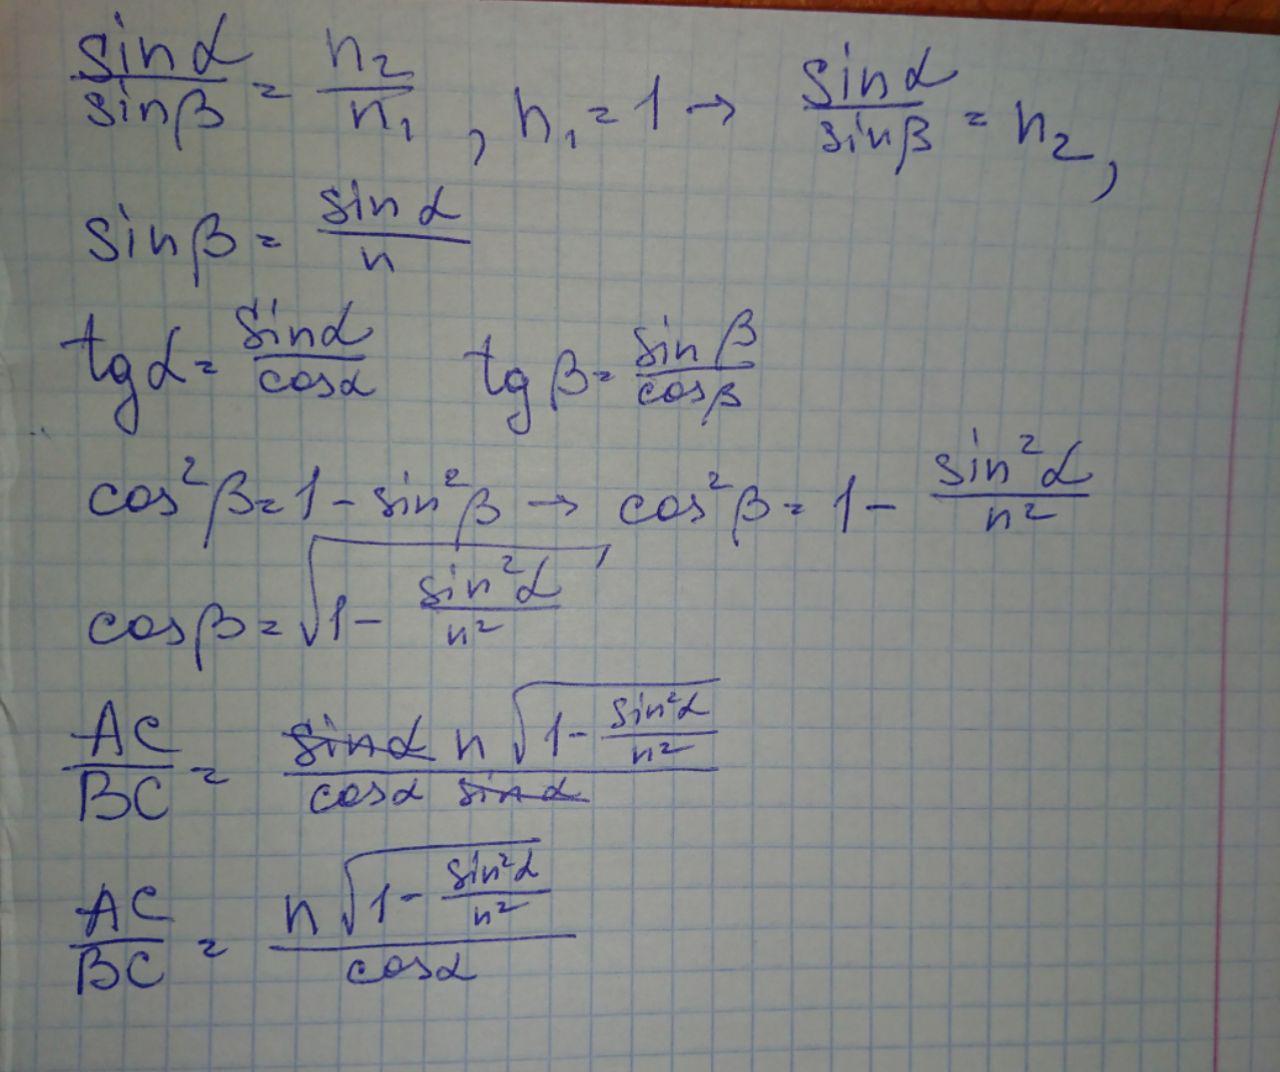 sinα/sinβ = n₂/n₁, n₁ = 1 → sinα/sinβ = n₂,
sinβ = sinα/n
tgα = sinα/cosα tgβ = sinβ/cosβ
cos²β = 1 - sin²β → cos²β = 1 - sin²α/n²
cosβ = √(1 - sin²α/n²)
AC/BC = sinα n √(1 - sin²α/n²)/cosα sinα
AC/BC = n √(1 - sin²α/n²)/cosα